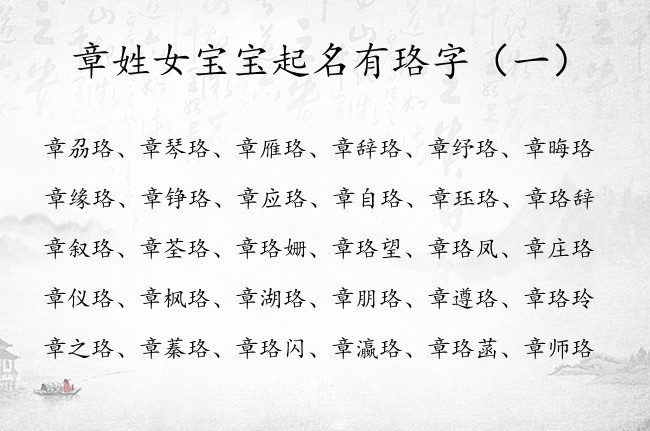 章姓女宝宝起名有珞字（一）
章刕珞、章琴珞、章雁珞、章辞珞、章纾珞、章晦珞
章缘珞、章铮珞、章应珞、章自珞、章珏珞、章珞辞
章叙珞、章荃珞、章珞姗、章珞望、章珞凤、章庄珞
章仪珞、章枫珞、章湖珞、章朋珞、章遵珞、章珞玲
章之珞、章蓁珞、章珞闪、章瀛珞、章珞菡、章师珞